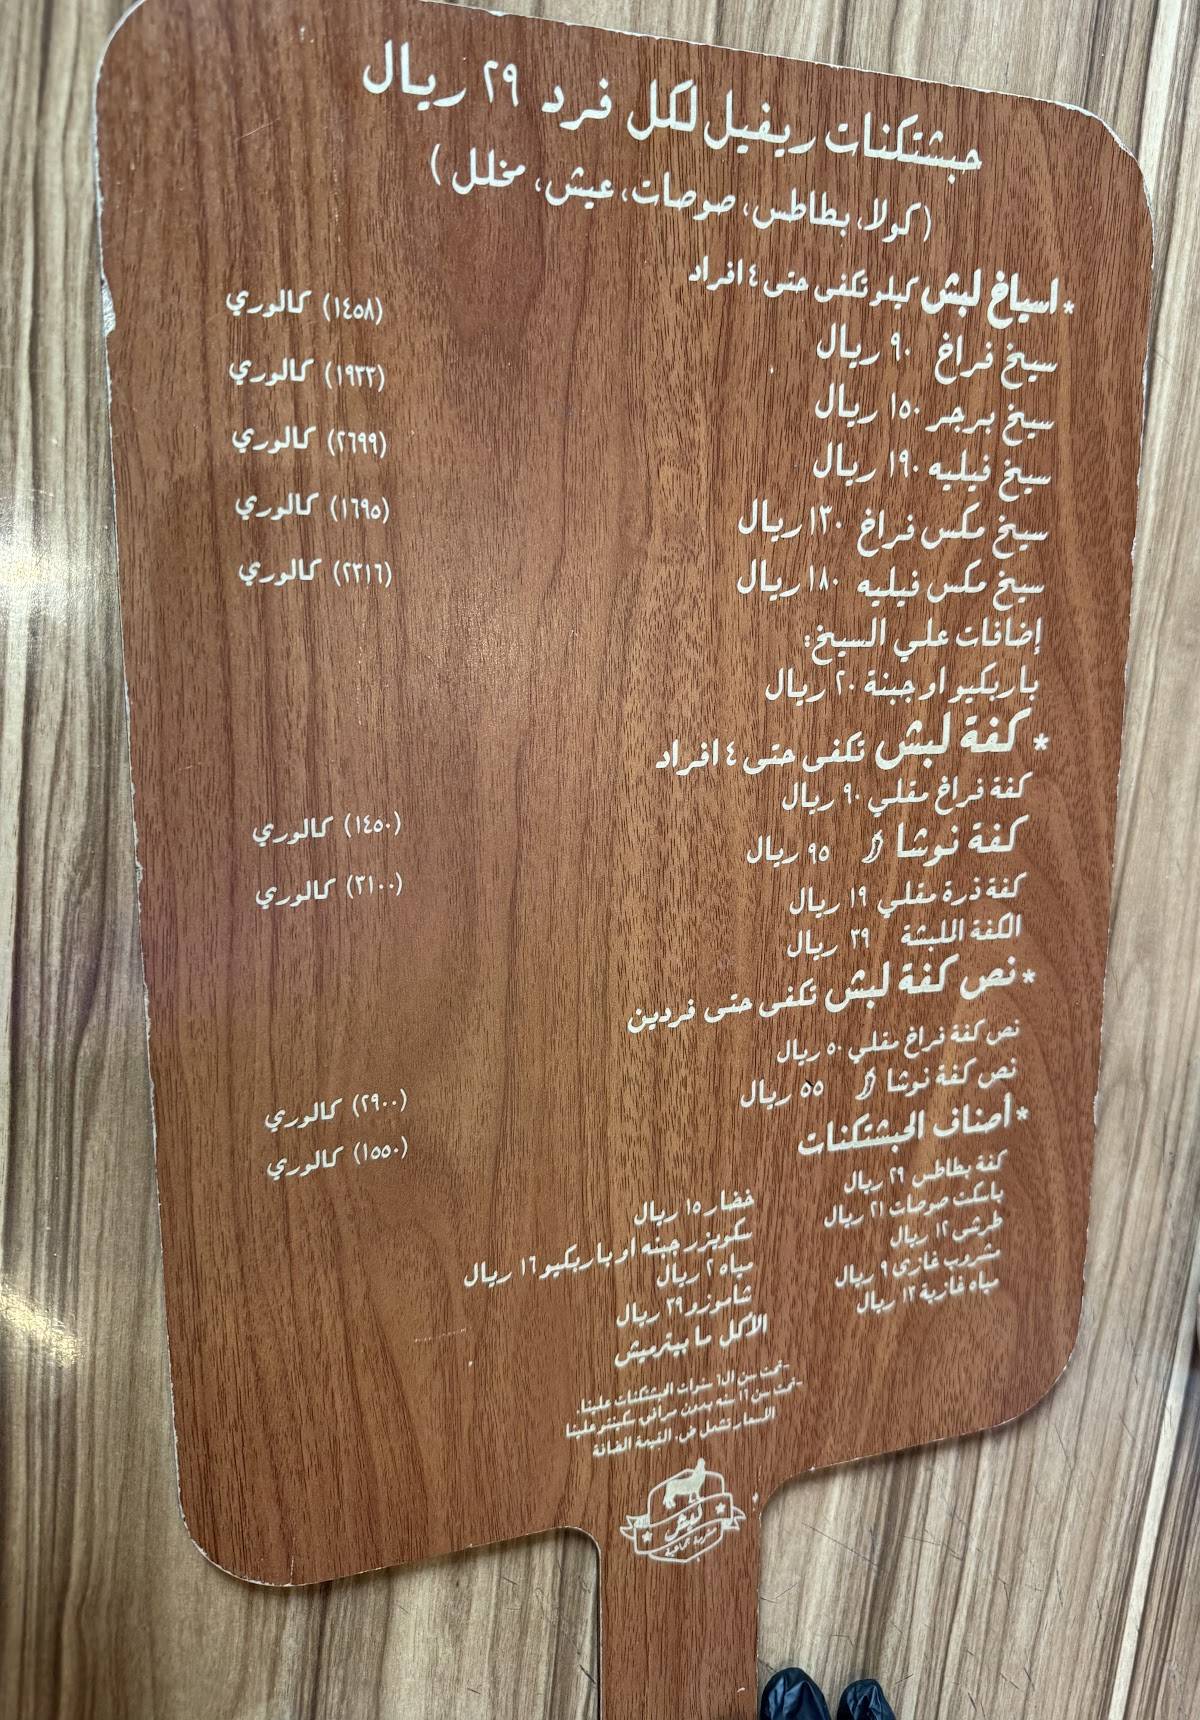 حبشتكنات ريفيل لكل فرد ٢٩ ريال
(كولا، بطاطس، صوصات، عيش، مخلل)
* اسياخ لبش كيلو تكفى حتى ٤ افراد
سيخ فراخ ٩٠ ريال (١٤٥٨) كالوري
سيخ برجر ١٥٠ ريال (١٩٣٢) كالوري
سيخ فيليه ١٩٠ ريال (٢٦٩٩) كالوري
سيخ مكس فراخ ١٣٠ ريال (١٦٩٥) كالوري
سيخ مكس فيليه ١٨٠ ريال (٢٣١٦) كالوري
إضافات علي السيخ:
باربكيو او جبنة ٢٠ ريال
* كفة لبش تكفى حتى ٤ افراد
كفة فراخ مقلي ٩٠ ريال (١٤٥٠) كالوري
كفة نوشا ٩٥ ريال (٣١٠٠) كالوري
كفة ذرة مقلي ١٩ ريال
الكفة الملبشة ٣٩ ريال
* نص كفة لبش تكفى حتى فردين
نص كفة فراخ مقلي ٥٠ ريال (٢٩٠٠) كالوري
نص كفة نوشا ٥٥ ريال (١٥٥٠) كالوري
* أصناف الحبشتكنات
كفة بطاطس ٢٩ ريال
باسكت صوصات ٢١ ريال
طرشى ١٢ ريال
مشروب غازى ٩ ريال
مياه غازية ١٣ ريال
خضار ١٥ ريال
سكويزر جبنه او باربكيو ١٦ ريال
مياه ٢ ريال
شاموزو ٣٩ ريال
الأكل ما بيترميش
-تحت سن ال٦ سنوات الحبشتكنات علينا.
-تحت سن ١٢ سنه بدون مرافق سكينتر علينا
الاسعار تشمل ض. القيمة المضافة
لبش